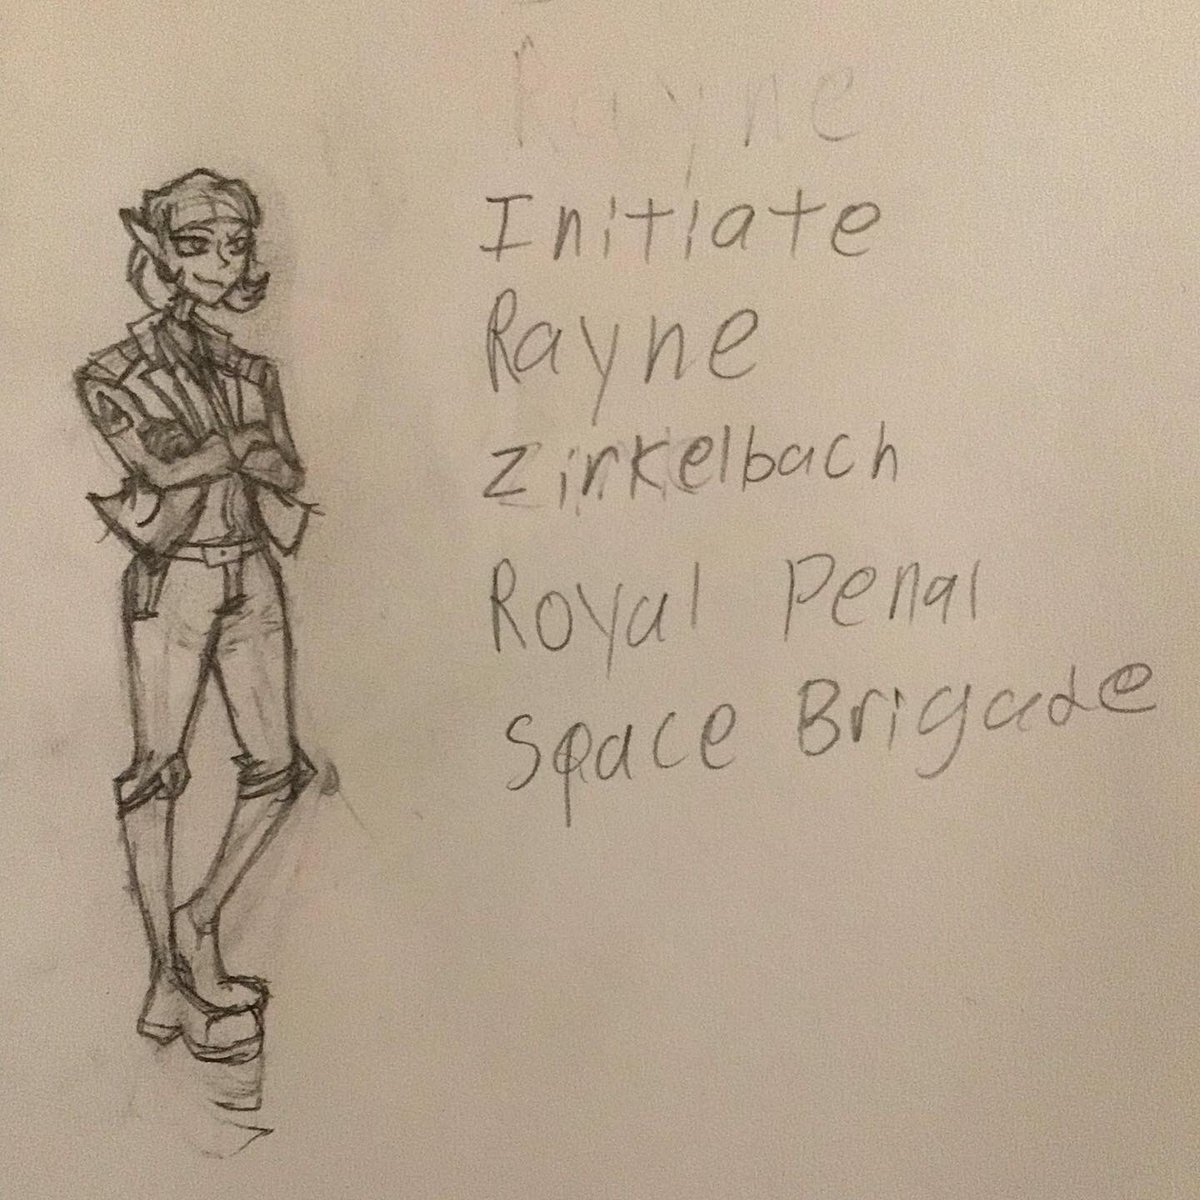 Rayne
Initiate
Rayne
Zirkelbach
Royal Penal
Space Brigade